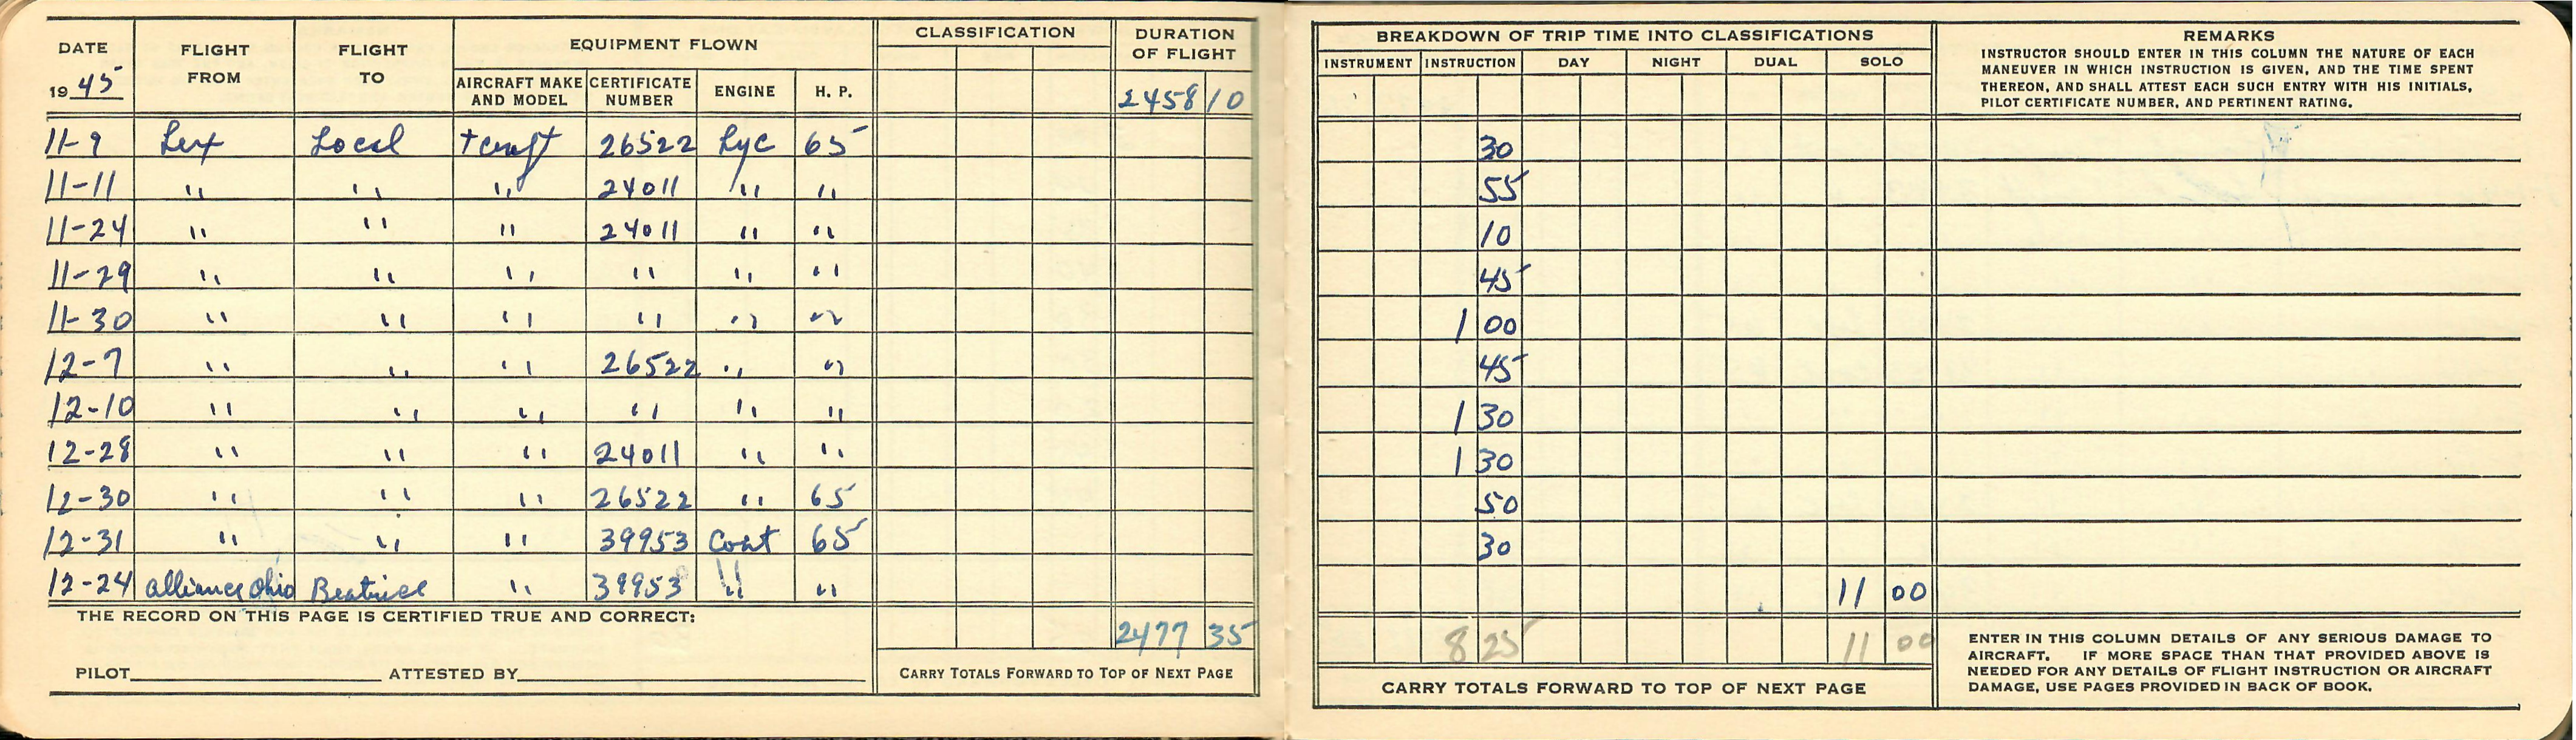 DATE 1945 FLIGHT FROM FLIGHT TO EQUIPMENT FLOWN CLASSIFICATION DURATION OF FLIGHT
AIRCRAFT MAKE AND MODEL CERTIFICATE NUMBER ENGINE H. P. 2458 10
11-9 Lex Local Tcraft 26522 Lyc 65
11-11 " " " 24011 " "
11-24 " " " 24011 " "
11-29 " " " " " "
11-30 " " " " " "
12-7 " " " 26522 " "
12-10 " " " " " "
12-28 " " " 24011 " "
12-30 " " " 26522 " 65
12-31 " " " 39953 Cont 65
12-24 Alliance Ohio Beatrice " 39953 " "
THE RECORD ON THIS PAGE IS CERTIFIED TRUE AND CORRECT:
2477 35
PILOT ATTESTED BY CARRY TOTALS FORWARD TO TOP OF NEXT PAGE
BREAKDOWN OF TRIP TIME INTO CLASSIFICATIONS
INSTRUMENT INSTRUCTION DAY NIGHT DUAL SOLO
REMARKS
INSTRUCTOR SHOULD ENTER IN THIS COLUMN THE NATURE OF EACH
MANEUVER IN WHICH INSTRUCTION IS GIVEN, AND THE TIME SPENT
THEREON, AND SHALL ATTEST EACH SUCH ENTRY WITH HIS INITIALS,
PILOT CERTIFICATE NUMBER, AND PERTINENT RATING.
30
55
10
45
1 00
45
1 30
1 30
50
30
11 00
8 25 11 00
CARRY TOTALS FORWARD TO TOP OF NEXT PAGE
ENTER IN THIS COLUMN DETAILS OF ANY SERIOUS DAMAGE TO
AIRCRAFT. IF MORE SPACE THAN THAT PROVIDED ABOVE IS
NEEDED FOR ANY DETAILS OF FLIGHT INSTRUCTION OR AIRCRAFT
DAMAGE, USE PAGES PROVIDED IN BACK OF BOOK.